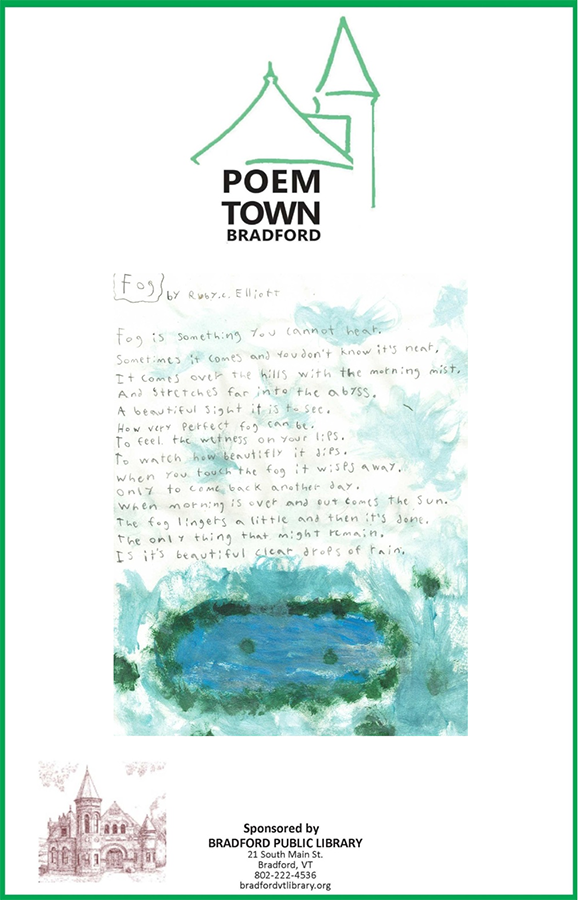 POEM
TOWN
BRADFORD
Fog
by Ruby.C. Elliott
Fog is something You cannot hear.
Sometimes it comes and You don't know it's near.
It comes over the hills with the morning mist.
And Stretches far into the abyss.
A beautiful Sight it is to see.
How very Perfect fog can be.
To feel the wetness on your lips.
To watch how beautifly it dips.
When you touch the fog it wisps away.
Only to come back another day.
When morning is over and out comes the Sun.
The fog lingers a little and then it's done.
The only thing that might remain.
Is it's beautiful clear drops of rain.
Sponsored by
BRADFORD PUBLIC LIBRARY
21 South Main St.
Bradford, VT
802-222-4536
bradfordvtlibrary.org